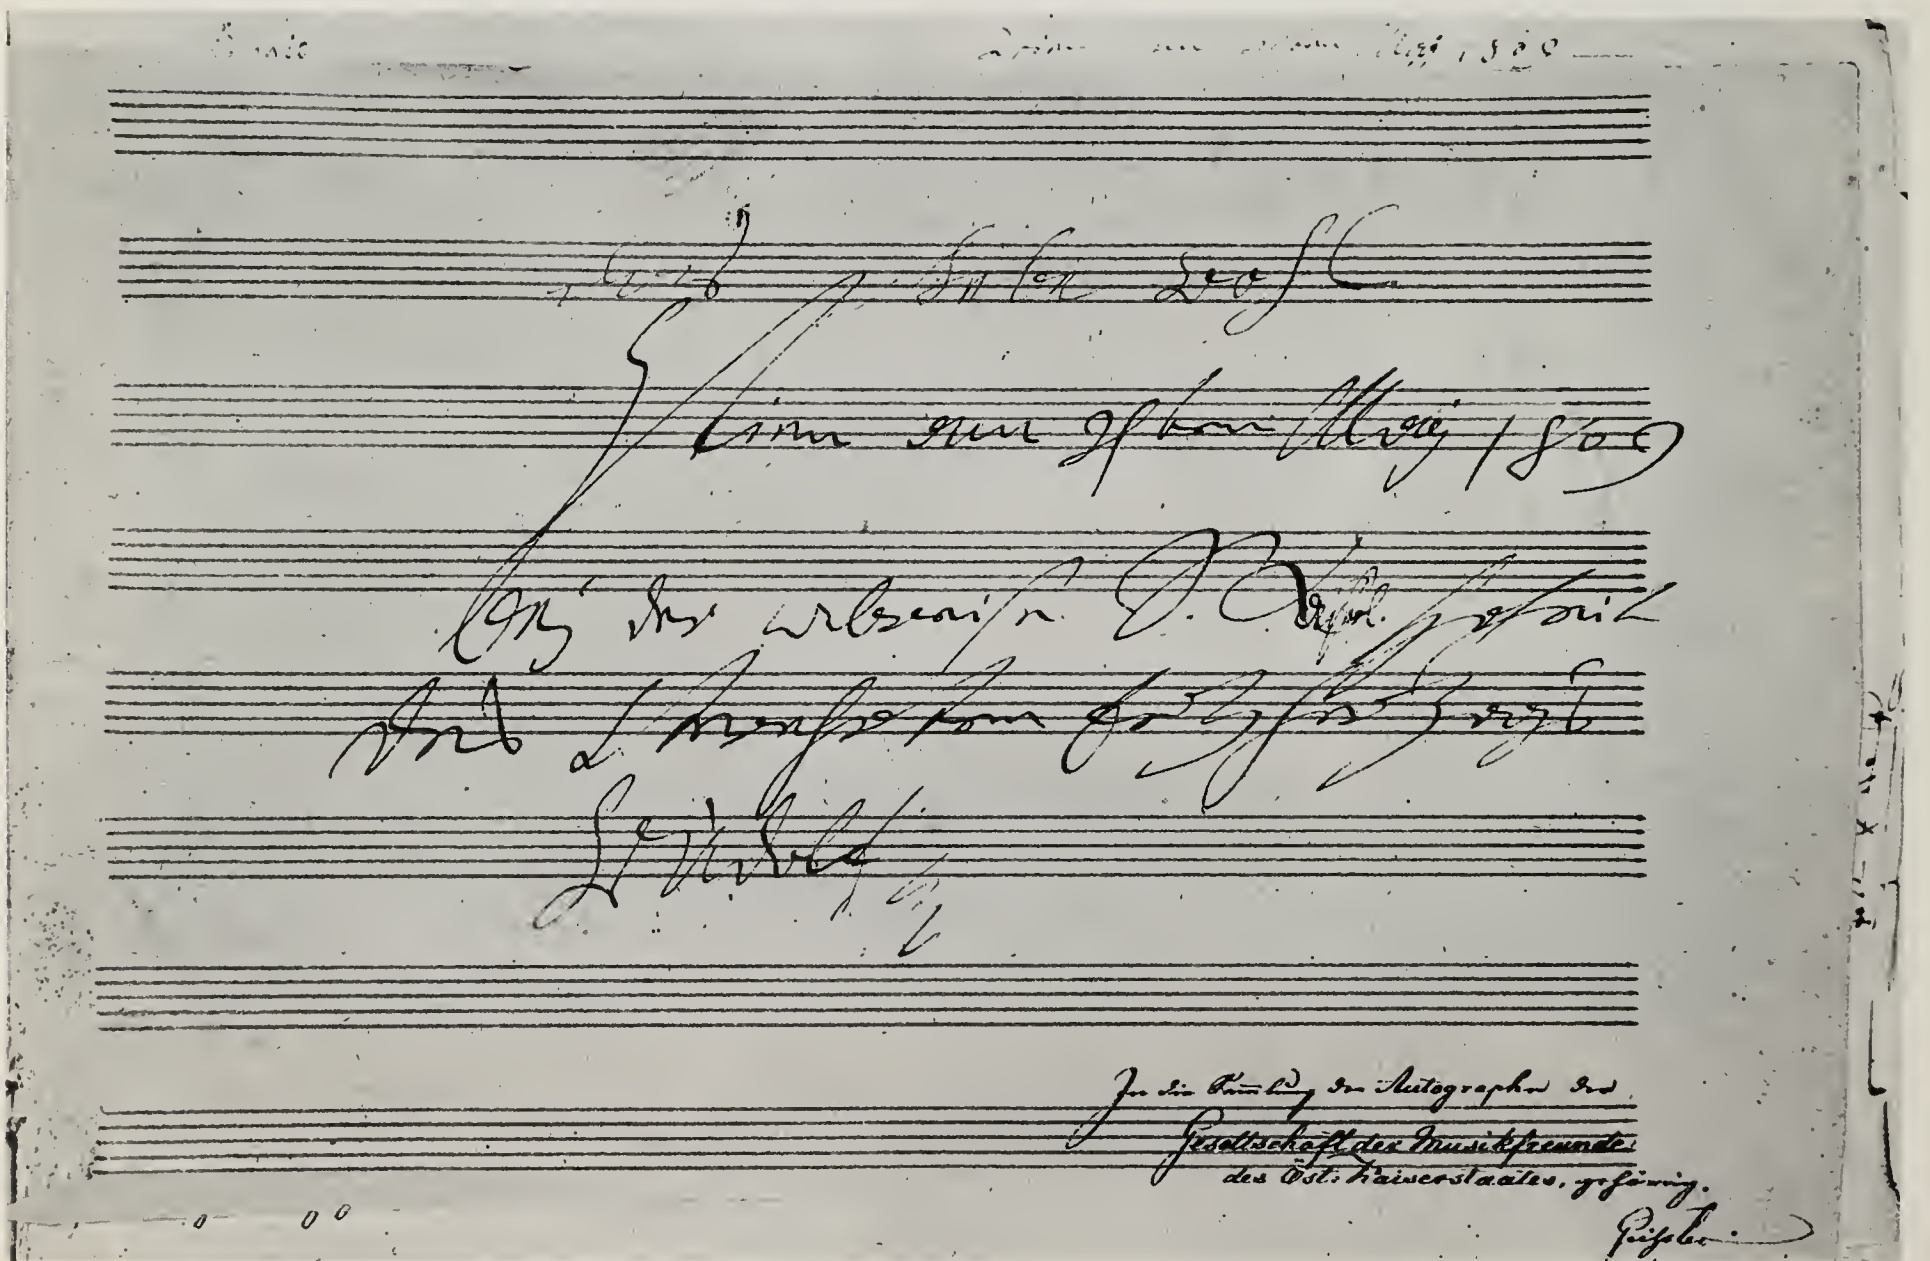 May 1809
Das Lebe Wohl
Wien am 4ten May 1809
bej der abreise S. Kaiserl. Hoheit
des Verehrten Erzherzogs
Rudolf
In die Sam̄lung der Autographe der
Gesellschaft der Musikfreunde
des Öst: Kaiserstaates, gehörig.
Geissler